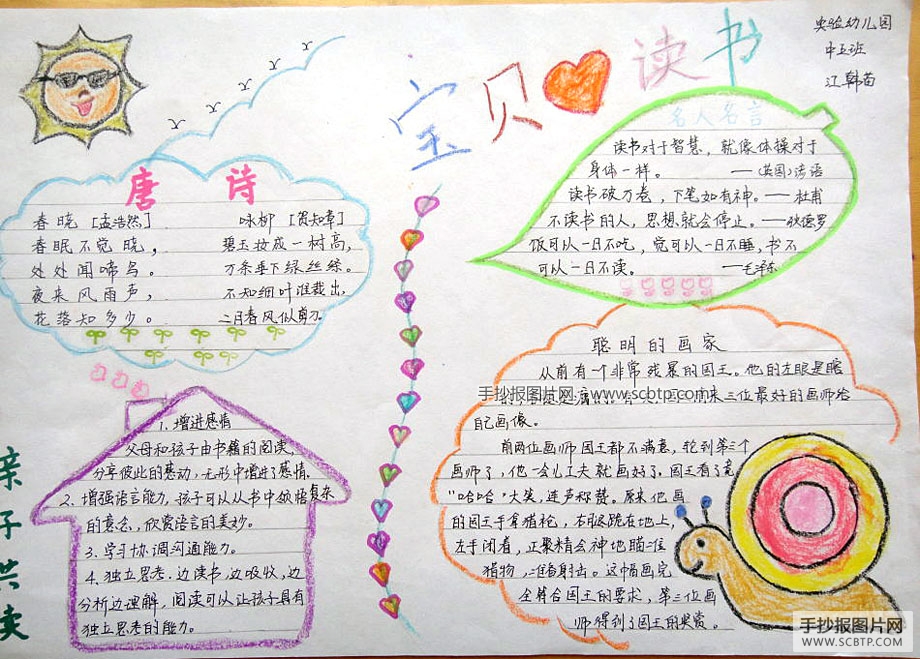 实验幼儿园
中五班
江韩苗
宝贝 读书
唐诗
春晓 [孟浩然]
春眠不觉晓，
处处闻啼鸟。
夜来风雨声，
花落知多少。
咏柳 [贺知章]
碧玉妆成一树高，
万条垂下绿丝绦。
不知细叶谁裁出，
二月春风似剪刀。
名人名言
读书对于智慧，就像体操对于
身体一样。
——(英国)谚语
读书破万卷，下笔如有神。——杜甫
不读书的人，思想就会停止。——狄德罗
饭可以一日不吃，觉可以一日不睡，书不
可以一日不读。 ——毛泽东
亲子共读
1. 增进感情
父母和孩子由书籍的阅读，
分享彼此的感动，无形中增进了感情。
2. 增强语言能力，孩子可以从书中领悟复杂
的意念，欣赏语言的美妙。
3. 学习协调沟通能力。
4. 独立思考：边读书，边吸收，边
分析边理解，阅读可以让孩子具有
独立思考的能力。
聪明的画家
从前有一个非常残暴的国王。他的左眼是瞎
来三位最好的画师给
自己画像。
前两位画师国王都不满意，轮到第三个
画师了，他一会儿工夫就画好了。国王看了竟
"哈哈"大笑，连声称赞。原来他画
的国王手拿猎枪，右腿跪在地上，
左手闭着，正聚精会神地瞄准
猎物，准备射击。这幅画完
全符合国王的要求，第三位画
师得到了国王的奖赏。
手抄报图片网 www.scbtp.com
手抄报图片网
WWW.SCBTP.COM